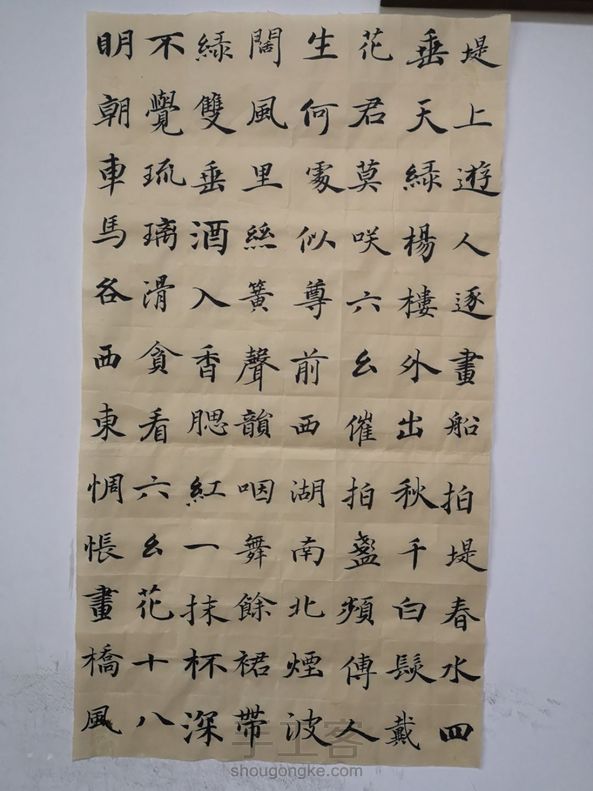 堤上遊人逐畫船拍堤春水四
垂天綠楊樓外出秋千白髮戴
花君莫咲六幺催拍盞頻傳人
生何處似尊前西湖南北煙波
闊風里絲簧聲韻咽舞餘裙帶
綠雙垂酒入香腮紅一抹杯深
不覺琉璃滑貪看六幺花十八
明朝車馬各西東惆悵畫橋風
手工客
shougongke.com